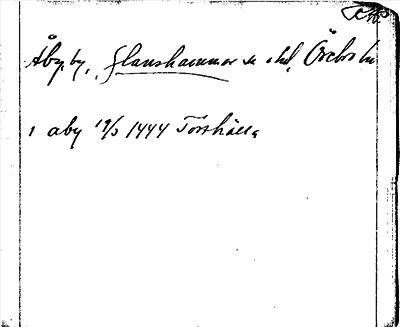 Åby, by, Glanshammar sn o hd, Örebro län
i aby 19/3 1444 Torshälla